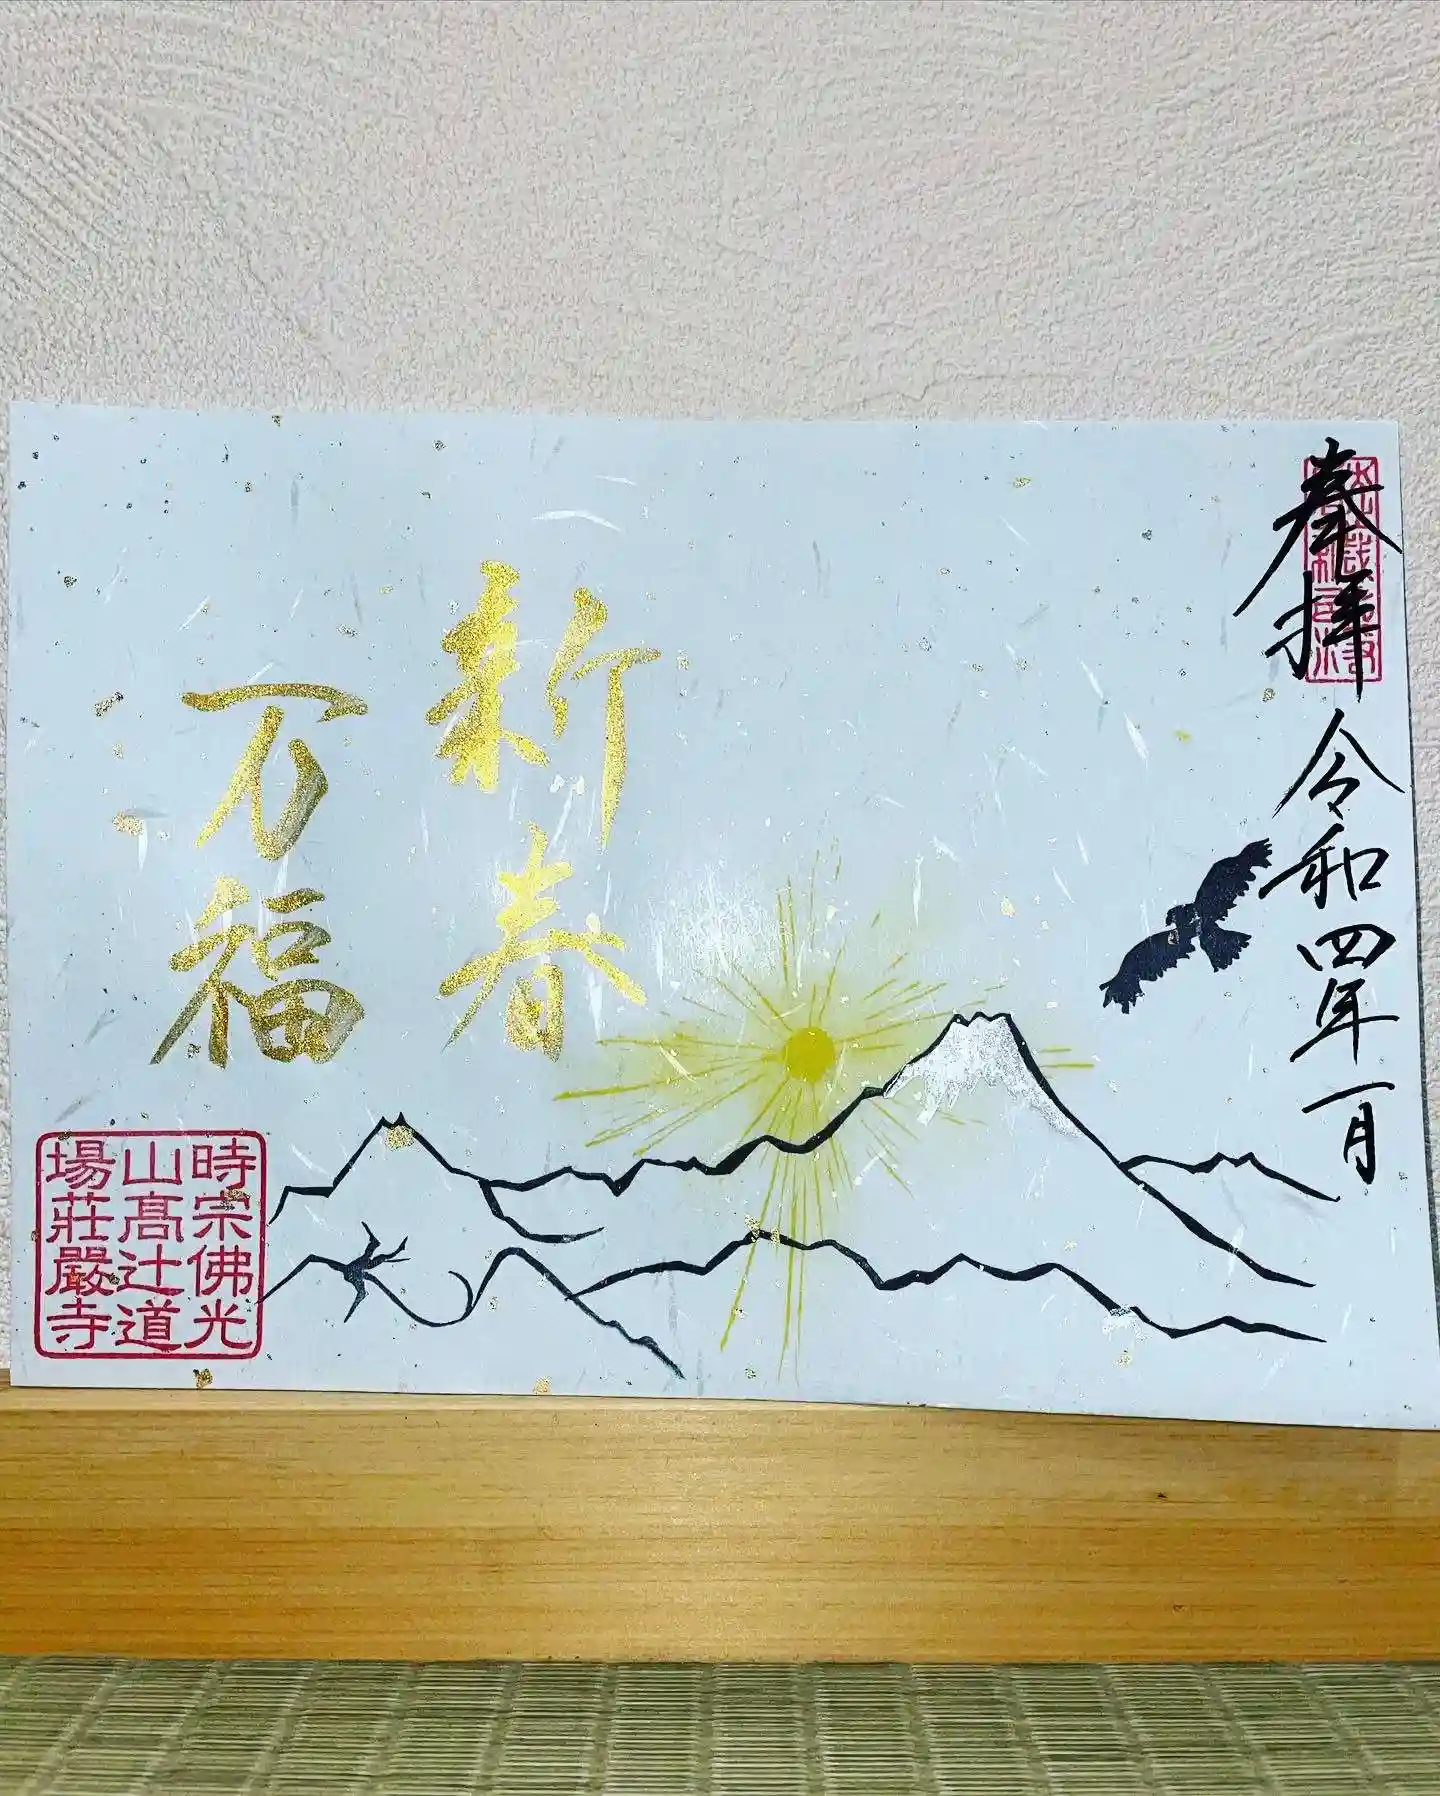 奉拝
令和四年一月
新春
万福
時宗佛光
山髙辻道
場荘嚴寺